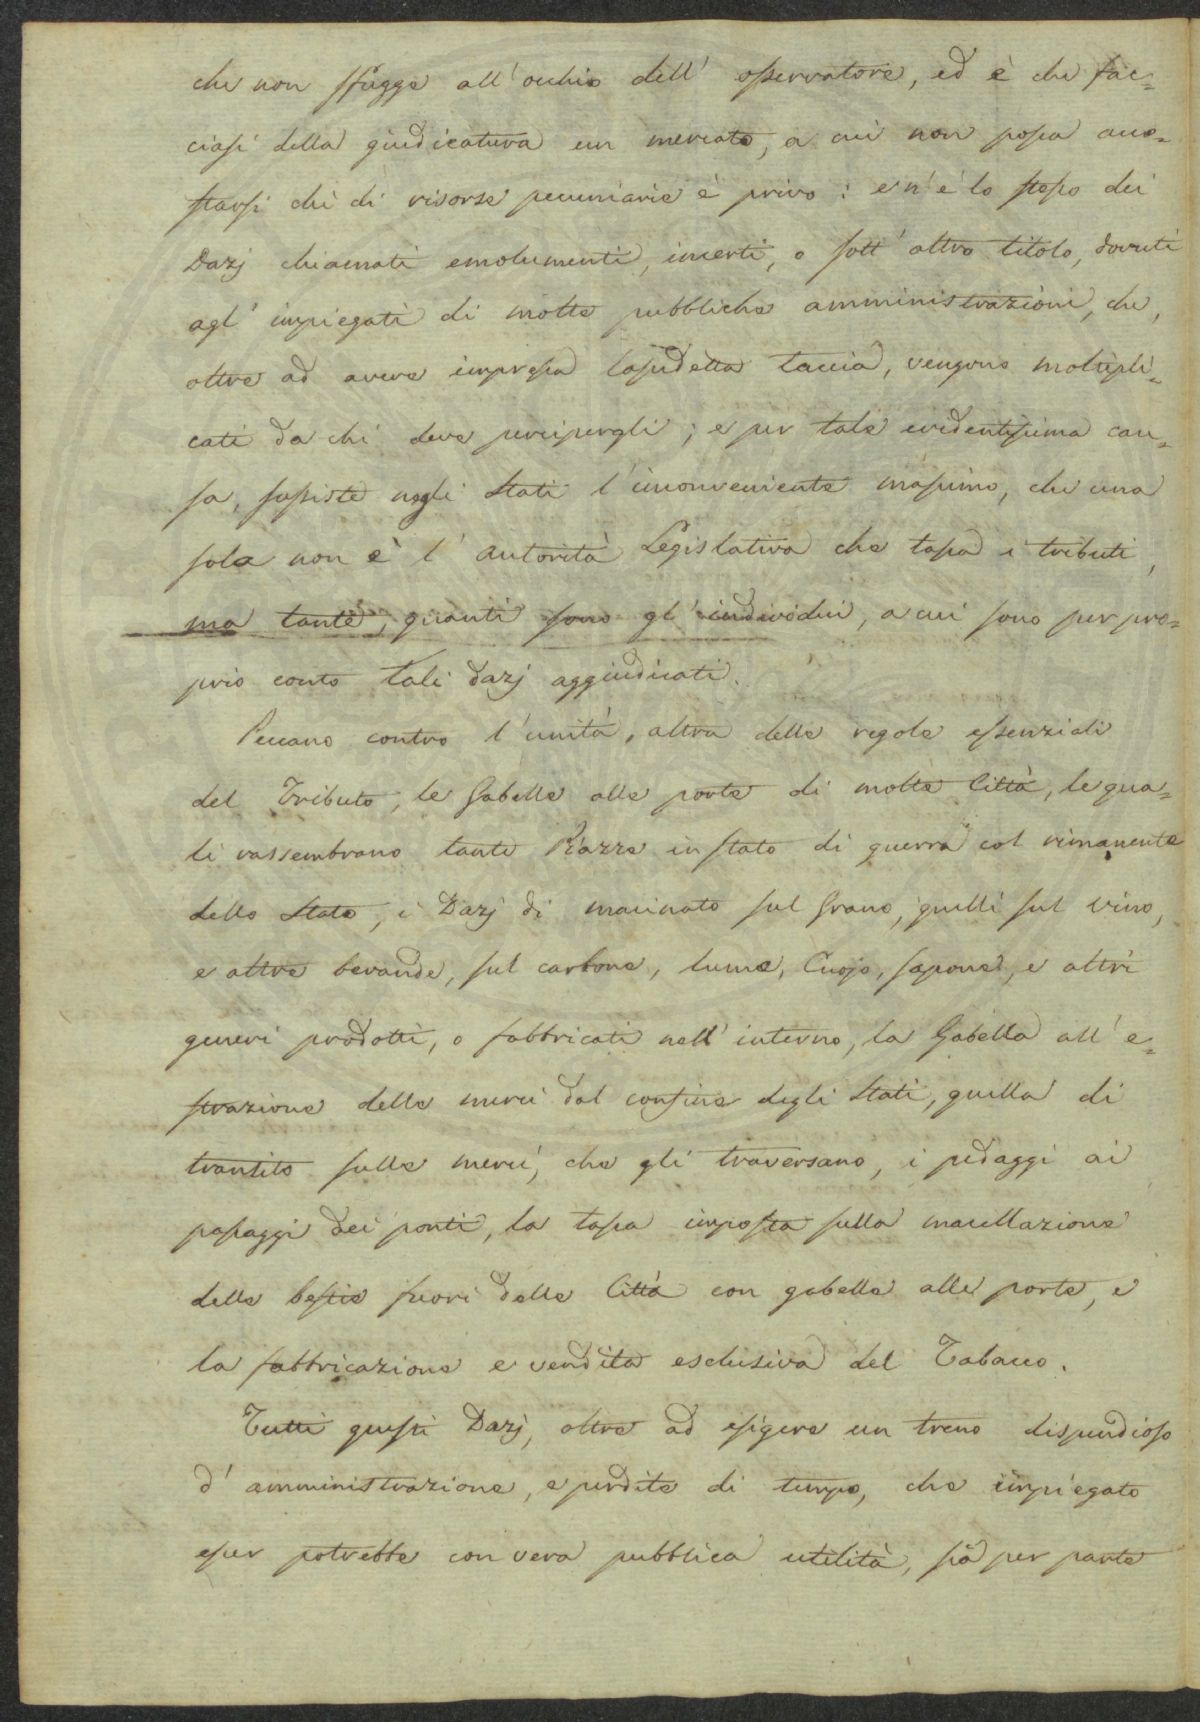 che non sfugge all'occhio dell'osservatore, ed è che fac=
ciasi della giudicatura un mercato, a cui non possa acco=
starsi chi di risorse pecuniarie è privo: e n'è lo stesso dei
Dazj chiamati emolumenti, incerti, o sott'altro titolo, dovuti
agl'impiegati di molte pubbliche amministrazioni, che,
oltre ad avere impressa la sudetta taccia, vengono moltipli=
cati da chi deve percipergli; e per tale evidentissima cau=
sa, sussiste negli Stati l'inconveniente massimo, che una
sola non è l'autorità Legislativa che tassa i tributi,
ma tante, quanti sono gl'individui, a cui sono per pro=
prio conto tali dazj aggiudicati.
Peccano contro l'unità, altra delle regole essenziali
del Tributo, le Gabelle alle porte di molte Città, le qua=
li rassembrano tante Piazze in stato di guerra col rimanente
dello Stato, i Dazj di macinato sul Grano, quelli sul vino,
e altre bevande, sul carbone, lume, Cuojo, sapone, e altri
generi prodotti, o fabbricati nell'interno, la Gabella all'e=
strazione delle merci dal confine degli Stati, quella di
transito sulle merci, che gli traversano, i pedaggi ai
passaggi dei ponti, la tassa imposta sulla macellazione
delle bestie fuori delle Città con gabelle alle porte, e
la fabbricazione e vendita esclusiva del Tabacco.
Tutti questi Dazj, oltre ad esigere un treno dispendioso
d'amministrazione, e perdite di tempo, che impiegato
esser potrebbe con vera pubblica utilità, sia per parte